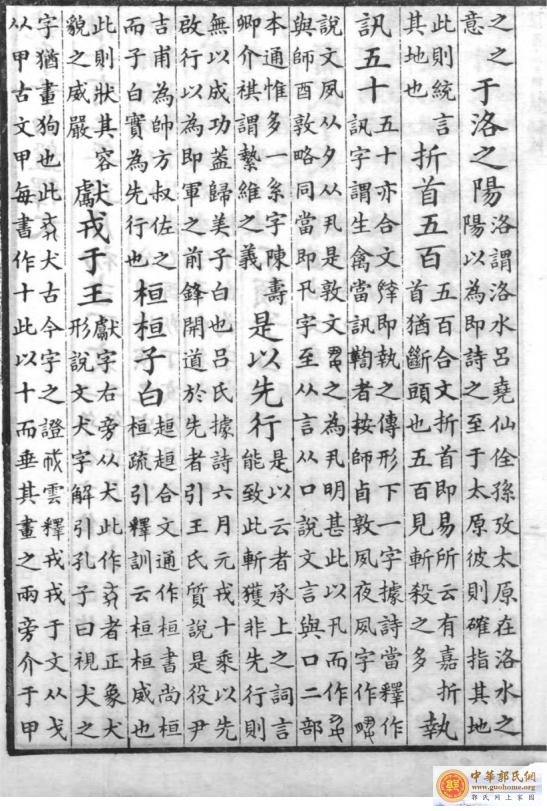 之之
意
于洛之陽
洛謂洛水呂堯仙佺孫攷太原在洛水之
陽以為即詩之至于太原彼則確指其地
此則統言
其地也
折首五百
五百合文折首即易所云有嘉折
首猶斷頭也五百見斬殺之多
執
訊五十
五十亦合文即執之傳形下一字據詩當釋作
訊字謂生禽當訊鞫者按師敦夙夜夙字作
說文夙从夕从丮是敦文之為丮明甚此以丮而作
與師酉敦略同當即丮字至从言从口說文言與口二部
本通惟多一糸字陳壽
卿介祺謂縶維之義
是以先行
是以云者承上之詞言
能致此斬獲非先行則
無以成功蓋歸美子白也呂氏據詩六月元戎十乘以先
啟行以為即軍之前鋒開道於先者引王氏質說是役尹
吉甫為帥方叔佐之
而子白實為先行也
桓桓子白
趄趄合文通作桓書尚桓
桓疏引釋訓云桓桓威也
此則狀其容
貌之威嚴
獻戎于王
獻字右旁从犬此作者正象犬
形說文犬字解引孔子曰視犬之
字猶畫狗也此犬古今字之證戒雲釋戎戎于文从戈
从甲古文甲每書作十此以十而垂其畫之兩旁介于甲
中華郭氏網
www.guohome.org
郭氏網上家園